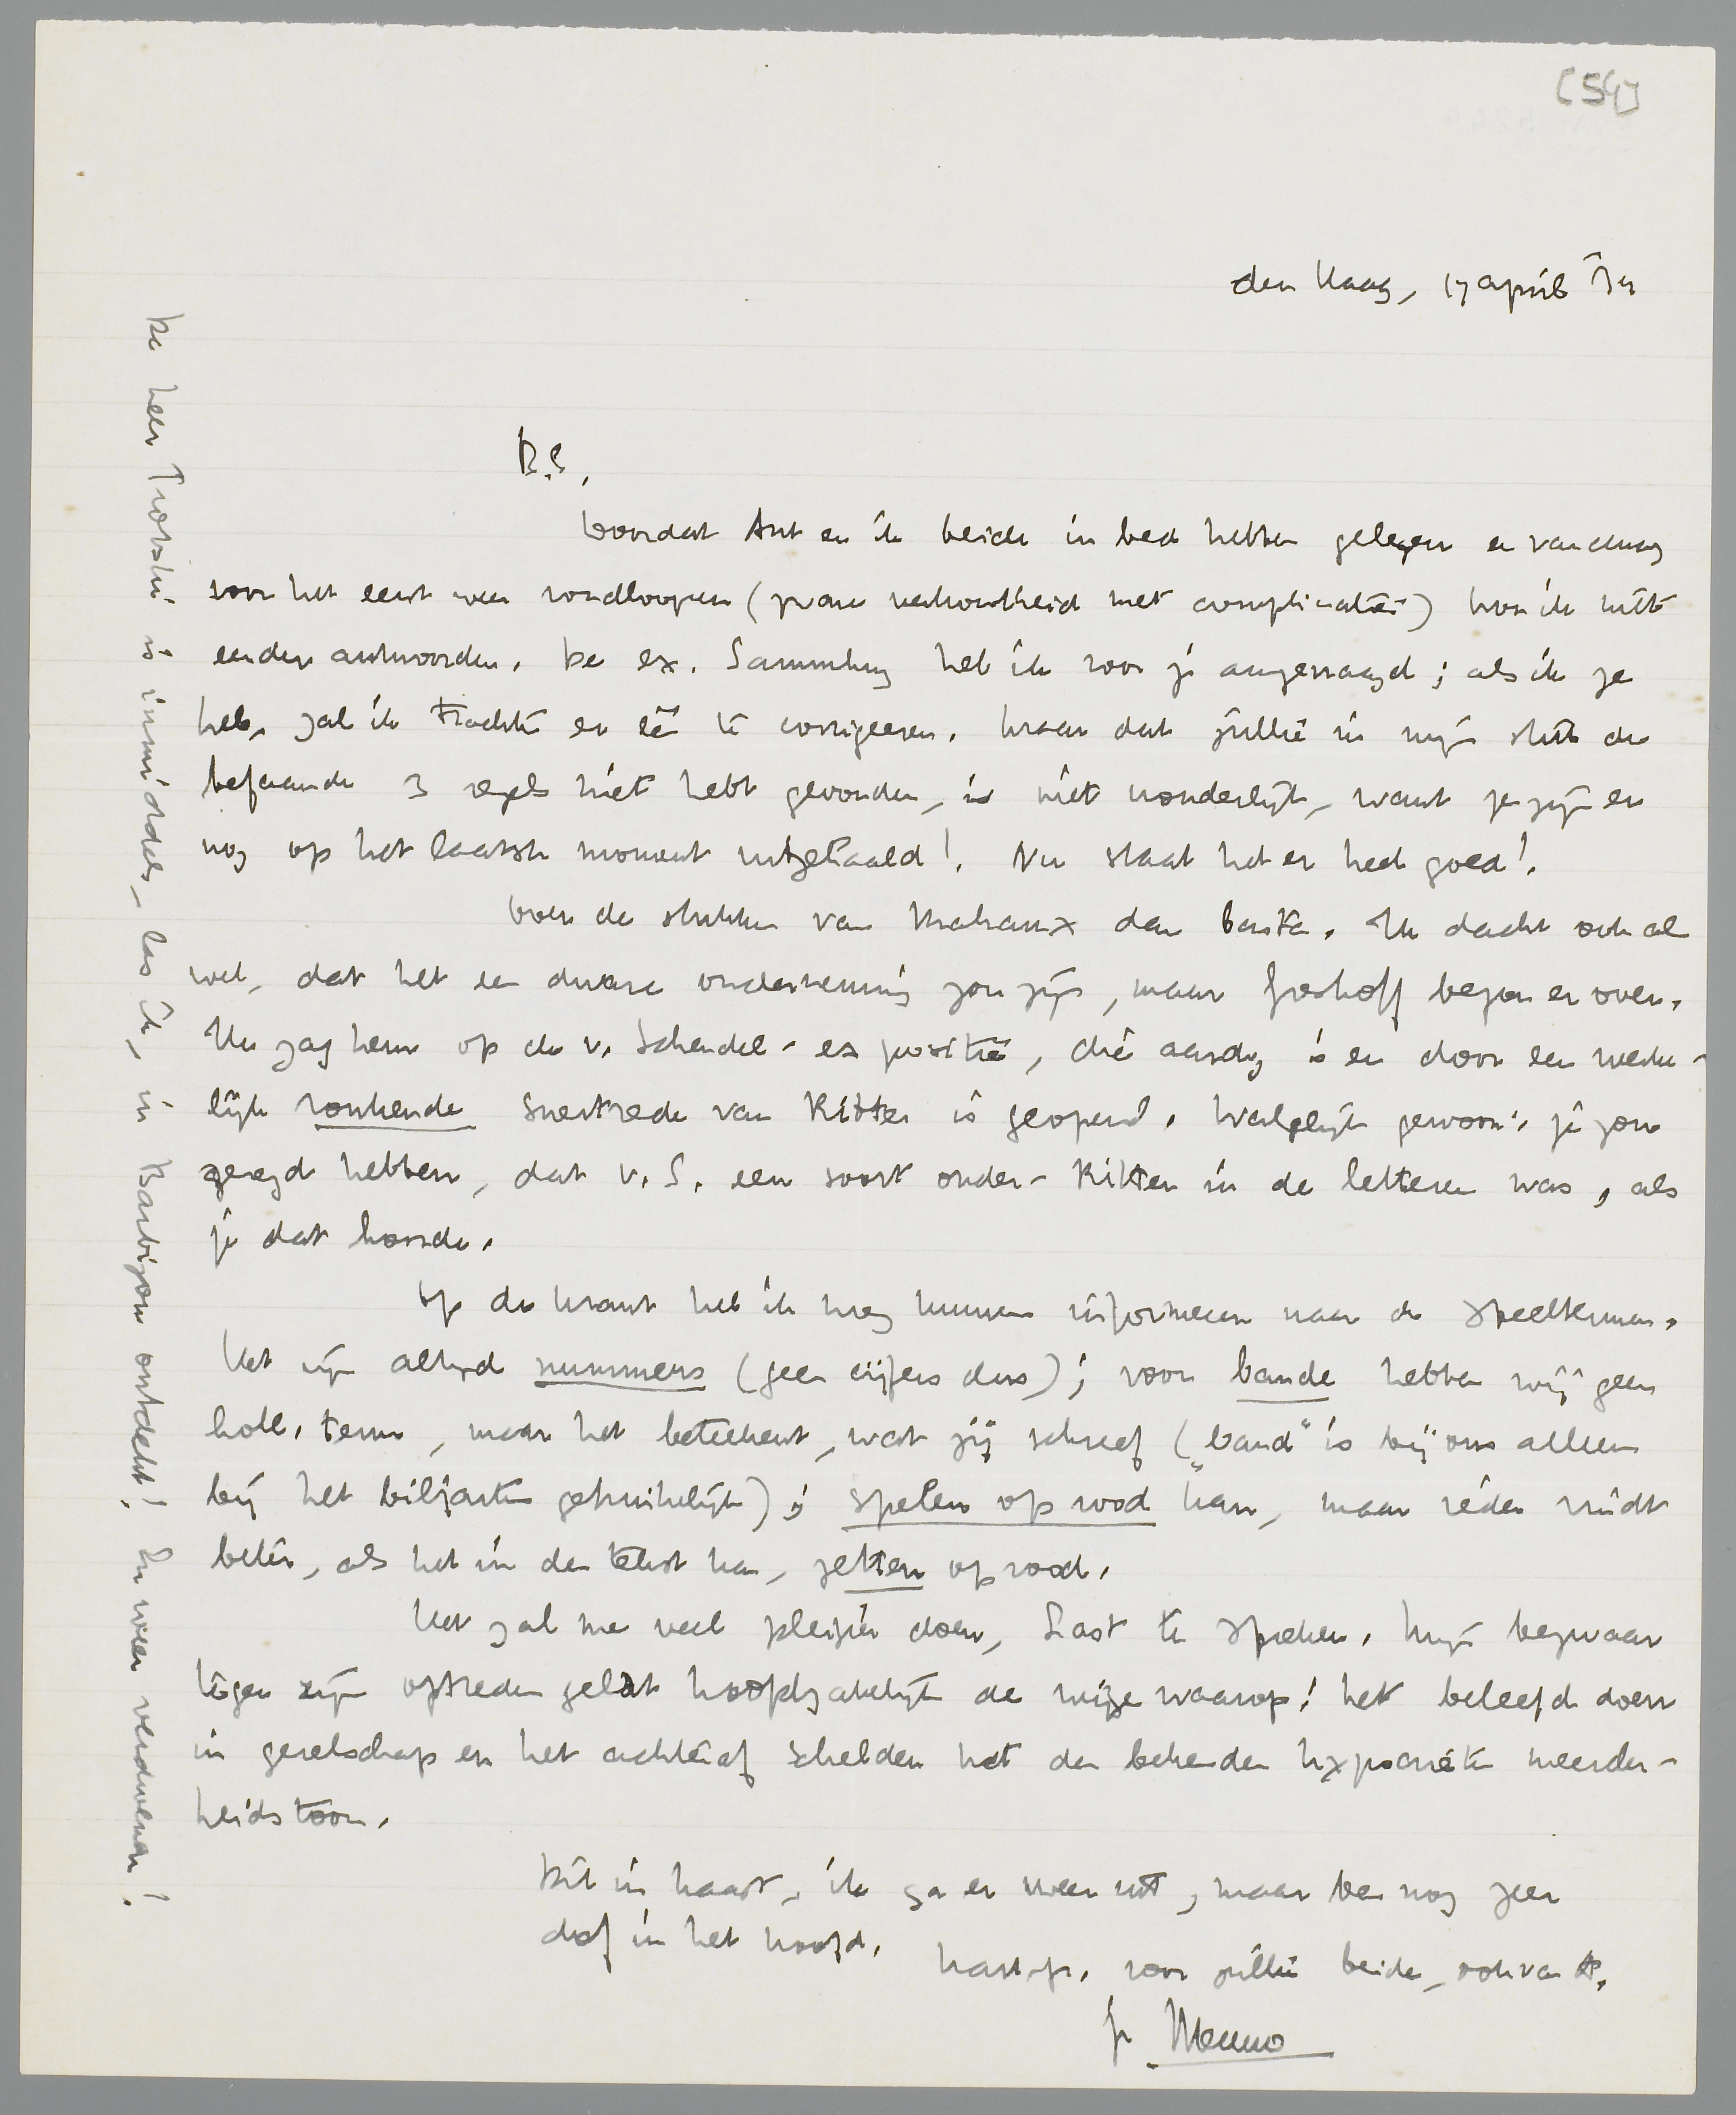 [54]
den Haag, 17 april '34
B.E.,
Doordat Ant en ik beide in bed hebben gelegen en vandaag
voor het eerst weer rondloopen (zware verkoudheid met complicaties) kon ik niet
eerder antwoorden. De ex. Sammlung heb ik voor je aangevraagd; als ik ze
heb, zal ik trachten er één te corrigeeren. Maar dat jullie in mijn stuk de
befaamde 3 regels niet hebt gevonden, is niet wonderlijk, want ze zijn er
nog op het laatste moment uitgehaald! Nu staat het er heel goed!
Voor de stukken van Malraux dan basta. Ik dacht ook al
wel, dat het een dwaze onderneming zou zijn, maar Greshoff begon er over.
Ik zag hem op de v. Schendel-expositie, die aardig is en door een werke-
lijk ronkende snertrede van Ritter is geopend. Walgelijk gewoon; je zou
gezegd hebben, dat v. S. een soort onder-Ritter in de letteren was, als
je dat hoorde.
Op de krant heb ik nog kunnen informeeren naar de speeltermen.
Het zijn altijd nummers (geen cijfers dus); voor bande hebben wij geen
holl. term, maar het beteekent, wat jij schreef („band" is bij ons alleen
bij het biljarten gebruikelijk); spelen op rood kan, maar ieder vindt
beter, als het in den tekst kan, zetten op rood.
Het zal me veel pleizier doen, Last te spreken. Mijn bezwaar
tegen zijn optreden geldt hoofdzakelijk de wijze waarop: het beleefd doen
in gezelschap en het achteraf schelden met den bekenden hypocrieten meerder-
heidstoon.
Dit in haast, ik ga er weer uit, maar ben nog zeer
dof in het hoofd.
hart. gr. voor jullie beide, ook van A.
je Menno
De heer Trotski is inmiddels, las ik, in Barbizon ontdekt! En weer verdwenen!